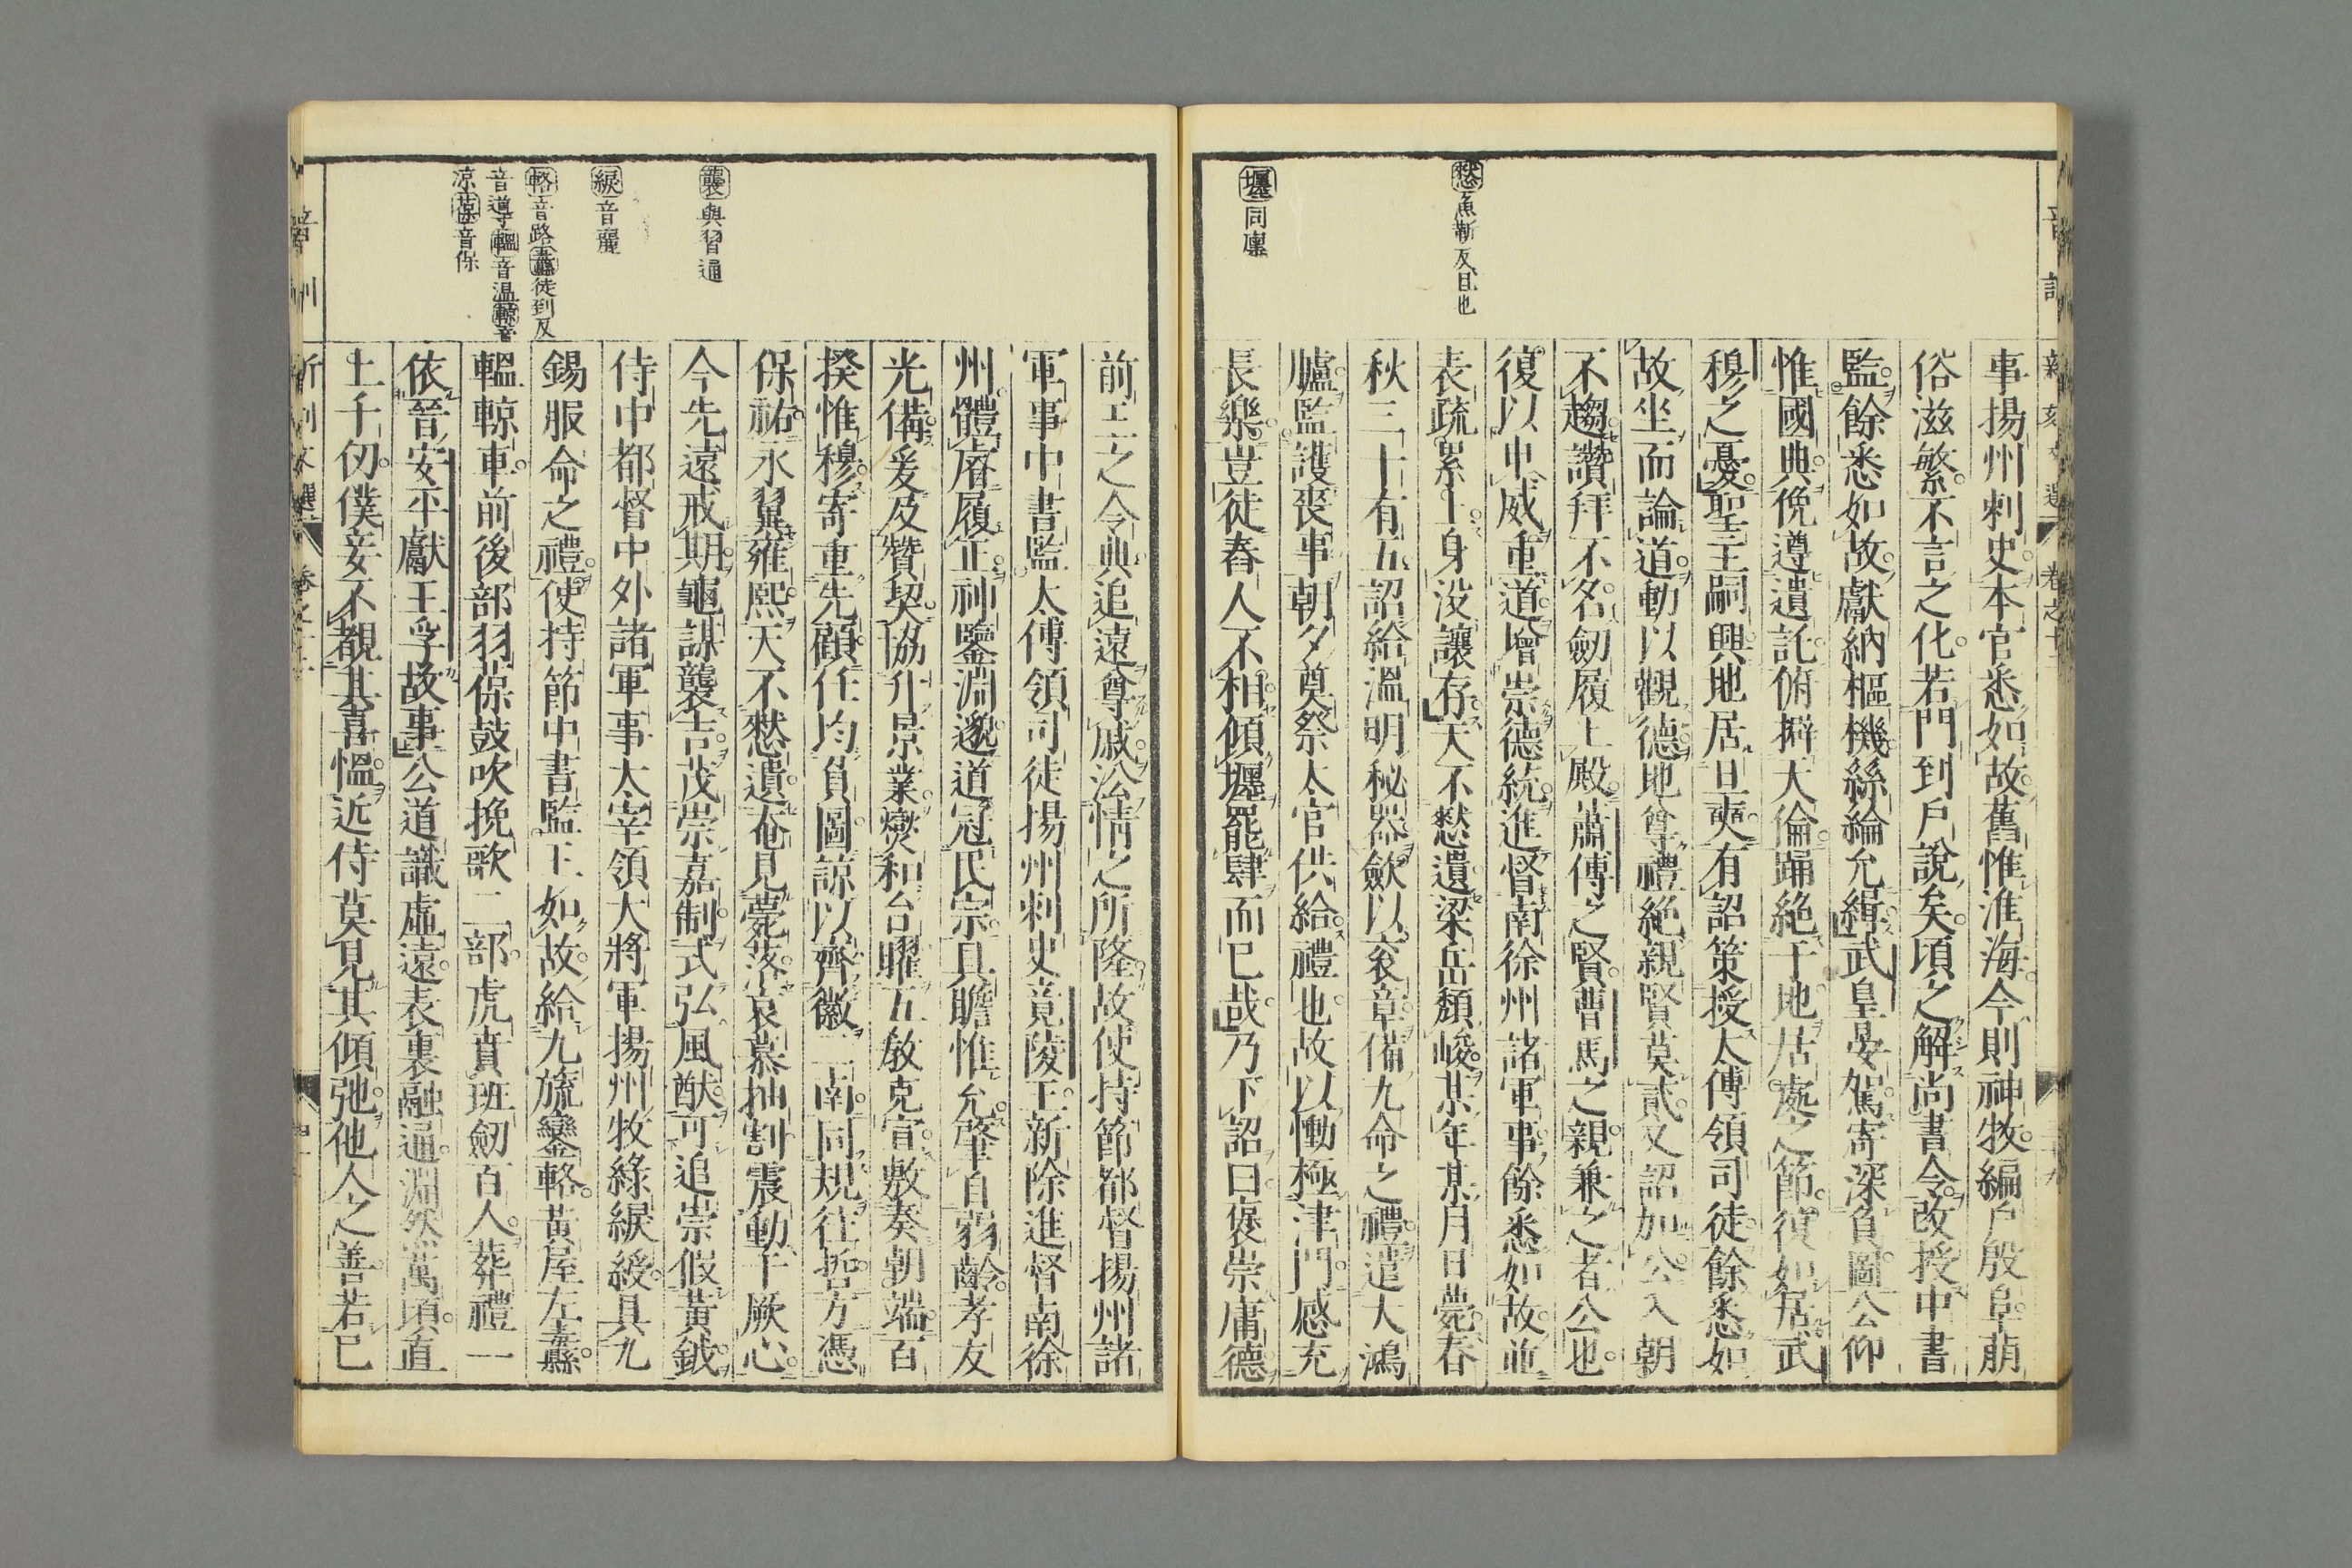 壥同廛
憖魚靳反且也
事揚州刺史本官悉如故舊惟淮海今則神牧編戸殷阜萠
俗滋繁不言之化若門到戸說矣頃之解尚書令改授中書
監餘悉如故獻納樞機絲綸允緝武皇晏駕寄深負圖公仰
惟國典俛遵遺託俯擗天倫踊絶于地居處之節復如居武
穆之憂聖主嗣興地居旦奭有詔策授太傅領司徒餘悉如
故坐而論道動以觀德地尊禮絶親賢莫貳又詔加公入朝
不趨讚拜不名劒履上殿蕭傅之賢曹馬之親兼之者公也
復以申威重道增崇德統進督南徐州諸軍事餘悉如故並
表疏累上身没讓存天不憖遺梁岳頽峻某年某月日薨春
秋三十有五詔給溫明秘器斂以衮章備九命之禮遣大鴻
臚監護喪事朝夕奠祭太官供給禮也故以慟極津門感充
長樂豈徒舂人不相傾壥罷肆而已哉乃下詔曰褒崇庸德
襲與習通
綟音麗
輅音路纛徒到反
音導轀音温輬音
凉葆音保
前王之令典追遠尊戚沿情之所隆故使持節都督揚州諸
軍事中書監太傅領司徒揚州刺史竟陵王新除進督南徐
州體睿履正神鑒淵邈道冠民宗具瞻惟允肇自弱齡孝友
光備爰及贊契協升景業燮和台曜五教克宣敷奏朝端百
揆惟穆寄重先顧任均負圖諒以齊徽二南同規往哲方憑
保祐永翼雍熙天不憖遺奄見薨落哀慕抽割震動于厥心
今先遠戒期龜謀襲吉茂崇嘉制式弘風猷可追崇假黃鉞
侍中都督中外諸軍事太宰領大將軍揚州牧綠綟綬具九
錫服命之禮使持節中書監王如故給九旒鑾輅黃屋左纛
轀輬車前後部羽葆鼓吹挽歌二部虎賁班劒百人葬禮一
依晉安平獻王孚故事公道識虛遠表裏融通淵然萬頃直
上千仞僕妾不覩其喜慍近侍莫見其傾弛他人之善若已